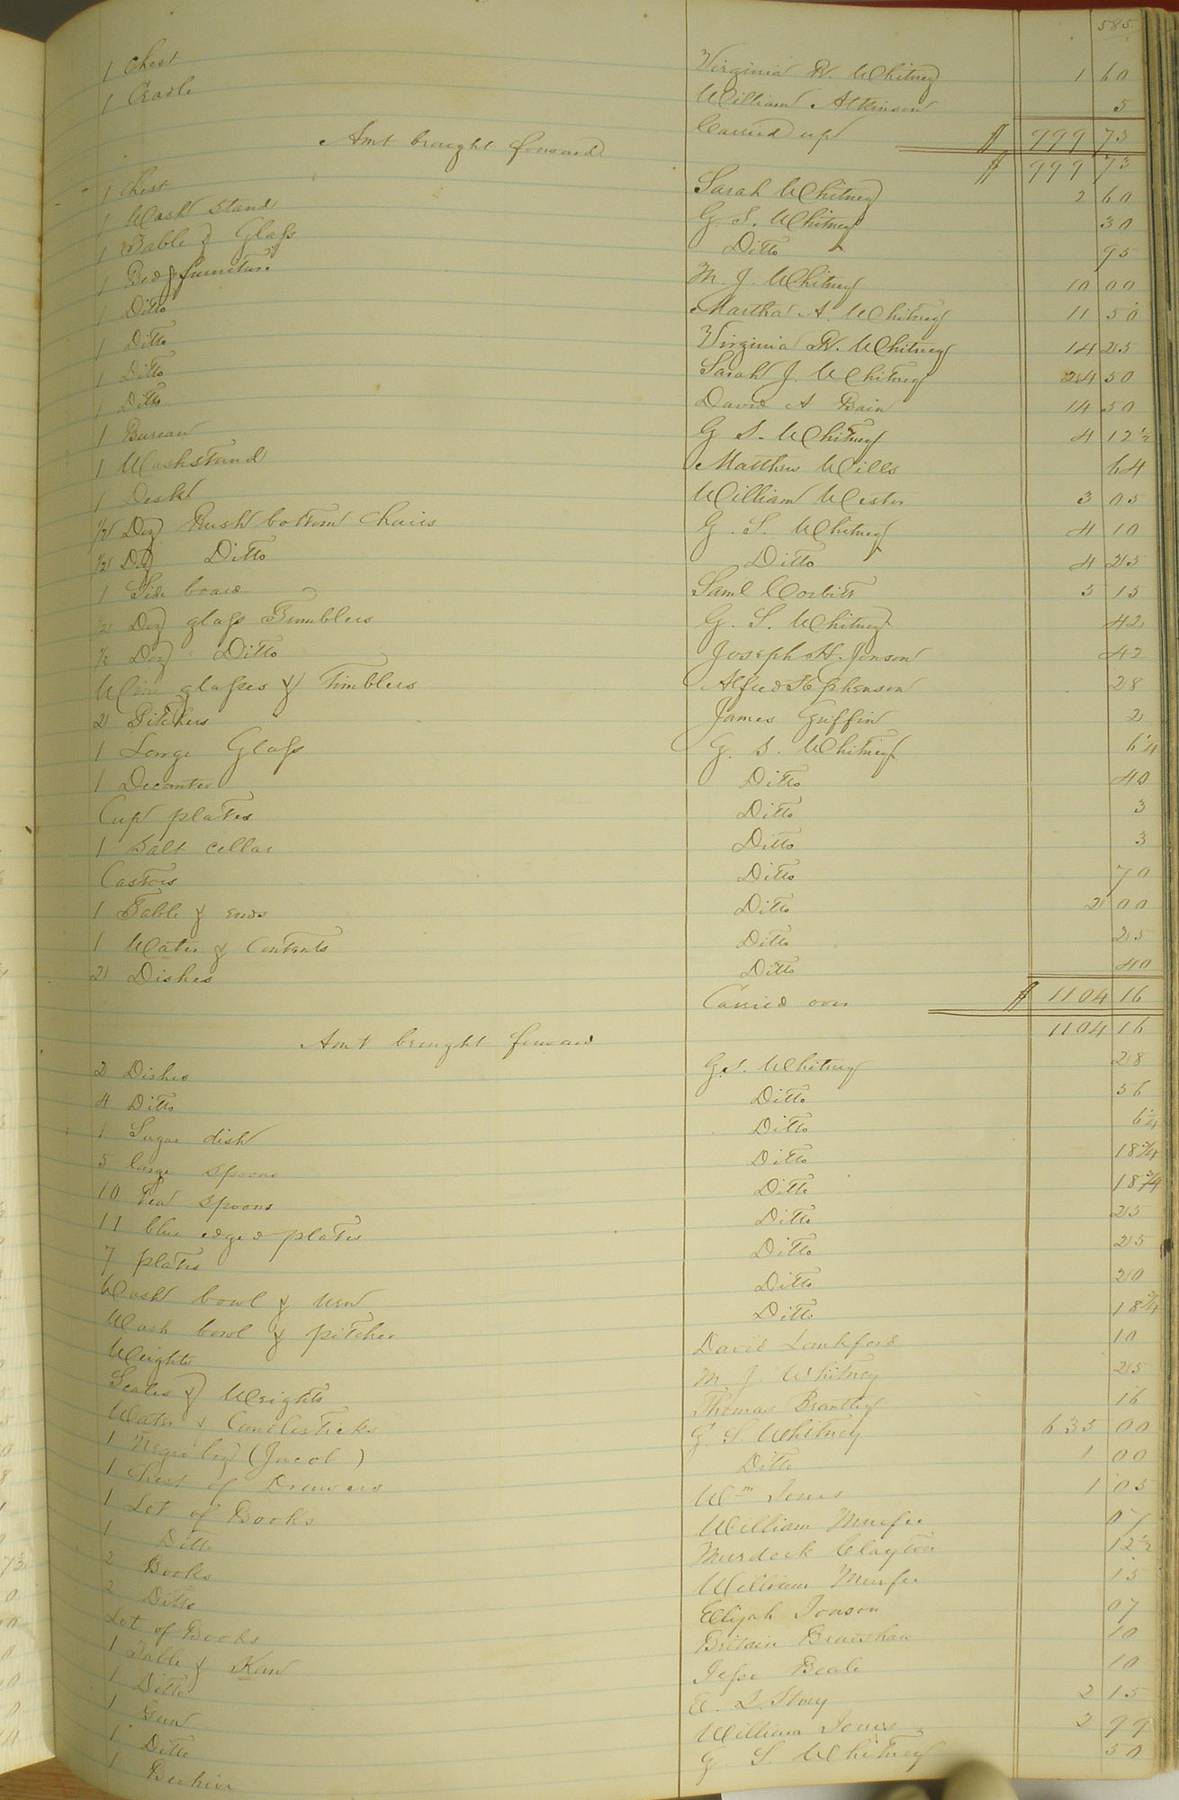 585
1 Chest Virginia W. Whitney 1 60
1 Cradle William Atkinson 5
Carried up $ 999 73
Amt brought forward $ 999 73
1 Chest Sarah Whitney 2 60
1 Wash stand G. S. Whitney 30
1 Table & Glass Ditto 95
1 Bed & furniture M. J. Whitney 10 00
1 Ditto Martha A. Whitney 11 50
1 Ditto Virginia W. Whitney 14 25
1 Ditto Sarah J. Whitney 24 50
1 Ditto David A Bain 14 50
1 Bureau G S. Whitney 4 12½
1 Washstand Matthew Wills 64
1 Desk William Wester 3 05
½ Doz Rush bottom Chairs G. S. Whitney 4 10
½ Doz Ditto Ditto 4 25
1 Side board Saml Corbitt 5 15
½ Doz glass Tumblers G. S. Whitney 42
½ Doz Ditto Joseph H. Jonson 42
Wine glasses & Timblers Alfred Stephenson 28
2 Pitchers James Guffin 2
1 Large Glass G. S. Whitney 6¼
1 Decanter Ditto 40
Cup plates Ditto 3
1 Salt cellar Ditto 3
Castors Ditto 70
1 Table & ends Ditto 2 00
1 Water & Contents Ditto 25
2 Dishes Ditto 40
Carried over $ 1104 16
Amt brought forward 1104 16
2 Dishes G.S. Whitney 28
4 Ditto Ditto 56
1 Sugar dish Ditto 6¼
5 large spoons Ditto 18¾
10 tea spoons Ditto 18¾
11 blue edged plates Ditto 25
7 plates Ditto 25
Wash bowl & urn Ditto 20
Wash bowl & pitcher Ditto 18¾
Weights David Lankford 10
Scales & Weights M. J. Whitney 25
Water & Candlesticks Thomas Brantley 16
1 Negro boy (Jacob) G S Whitney 635 00
1 Chest of Drawers Ditto 1 00
1 Lot of Books Wm Jones 1 05
1 Ditto William Murfee 07
2 Books Murdock Clayton 12½
2 Ditto William Murfee 15
Lot of Books Elijah Jonson 07
1 Table & Kan Britain Bradshaw 10
1 Ditto Jesse Beale 10
1 Gun E. D. Story 2 15
1 Ditto William Jones 2 99
1 Beehive G S Whitney 50